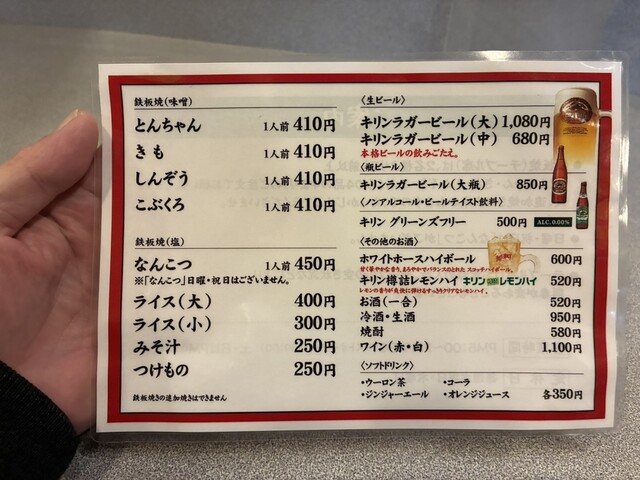 鉄板焼(味噌)
とんちゃん 1人前 410円
きも 1人前 410円
しんぞう 1人前 410円
こぶくろ 1人前 410円
鉄板焼(塩)
なんこつ 1人前 450円
※「なんこつ」日曜・祝日はございません。
ライス(大) 400円
ライス(小) 300円
みそ汁 250円
つけもの 250円
鉄板焼きの追加焼きはできません
〈生ビール〉
キリンラガービール(大) 1,080円
キリンラガービール(中) 680円
本格ビールの飲みごたえ。
〈瓶ビール〉
キリンラガービール(大瓶) 850円
〈ノンアルコール・ビールテイスト飲料〉
キリン グリーンズフリー 500円 ALC.0.00%
〈その他のお酒〉
ホワイトホースハイボール 600円
甘く華やかな香り、まろやかでバランスのとれた スコッチハイボール。
キリン樽詰レモンハイ キリン レモンハイ 520円
レモンの香りが爽快に弾けるすっきりクリアなレモンハイ。
お酒(一合) 520円
冷酒・生酒 950円
焼酎 580円
ワイン(赤・白) 1,100円
〈ソフトドリンク〉
・ウーロン茶 ・コーラ
・ジンジャーエール ・オレンジジュース 各350円